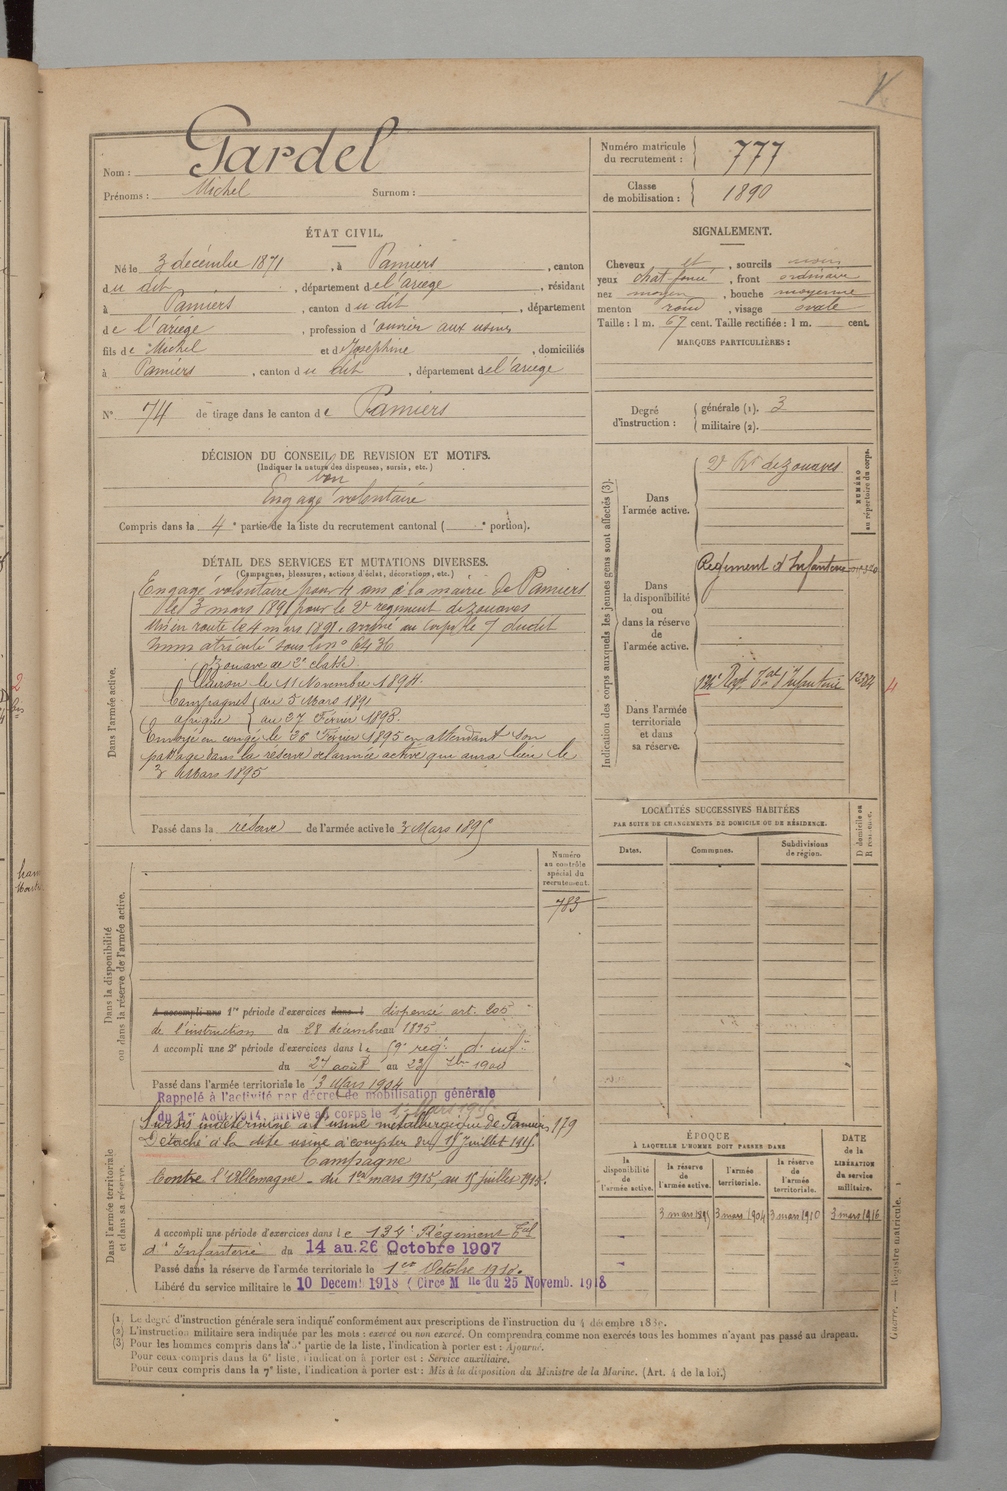 Nom : Gardel
Prénoms : Michel Surnom :
Numéro matricule du recrutement : 777
Classe de mobilisation : 1890
ÉTAT CIVIL.
Né le 3 décembre 1871, à Pamiers, canton
du dit, département de l'ariège, résidant
à Pamiers, canton du dit, département
de l'ariège, profession d'ouvrier aux usines
fils de Michel et de Joséphine, domiciliés
à Pamiers, canton du dit, département de l'ariège
N° 74 de tirage dans le canton de Pamiers
SIGNALEMENT.
Cheveux et, sourcils noirs
yeux chat. foncé, front ordinaire
nez moyen, bouche moyenne
menton rond, visage ovale
Taille : 1 m. 67 cent. Taille rectifiée : 1 m. cent.
MARQUES PARTICULIÈRES :
Degré d'instruction : générale (1). 3
militaire (2).
DÉCISION DU CONSEIL DE REVISION ET MOTIFS.
(Indiquer la nature des dispenses, sursis, etc.)
bon
Engagé volontaire
Compris dans la 4e partie de la liste du recrutement cantonal ( e portion).
DÉTAIL DES SERVICES ET MUTATIONS DIVERSES.
(Campagnes, blessures, actions d'éclat, décorations, etc.)
Dans l'armée active.
Engagé volontaire pour 4 ans à la mairie de Pamiers
le 3 mars 1891 pour le 2e régiment de zouaves
Mis en route le 4 mars 1891. arrivé au corps le 7 dudit
immatriculé sous le n° 6436
Zouave de 2e classe
Clairon le 11 Novembre 1894.
Campagnes du 5 Mars 1891
afrique au 27 Février 1895.
Envoyé en congé le 26 Février 1895 en attendant son
passage dans la réserve de l'armée active qui aura lieu le
3 Mars 1895
Passé dans la réserve de l'armée active le 3 Mars 1895
Indication des corps auxquels les jeunes gens sont affectés (3).
NUMÉRO au répertoire du corps.
Dans l'armée active.
2e Rt de zouaves
Dans la disponibilité ou dans la réserve de l'armée active.
Régiment d'Infanterie
Dans l'armée territoriale et dans sa réserve.
134e Regt Tal d'Infanterie
4
LOCALITÉS SUCCESSIVES HABITÉES
PAR SUITE DE CHANGEMENTS DE DOMICILE OU DE RÉSIDENCE.
Dates. Communes. Subdivisions de région. D domicile ou R résidence.
Dans la disponibilité ou dans la réserve de l'armée active.
Numéro au contrôle spécial du recrutement.
783
A accompli une 1re période d'exercices dans l dispensé art. 205
de l'instruction du 28 décembre 1895.
A accompli une 2e période d'exercices dans le 59e regt. d'infie
du 27 août au 23 7bre 1900
Passé dans l'armée territoriale le 3 Mars 1904
Rappelé à l'activité par décret de mobilisation générale
du 1er Août 1914, arrivé au corps le 1er Mars 1915.
Dans l'armée territoriale et dans sa réserve.
Sursis indéterminé à l'usine métallurgique de Pamiers 179
Détaché à la dite usine à compter du 15 Juillet 1915.
Campagne
Contre l'Allemagne - du 1er mars 1915 au 15 juillet 1915.
A accompli une période d'exercices dans le 134e Régiment Tal
d'Infanterie du 14 au 26 Octobre 1907
Passé dans la réserve de l'armée territoriale le 1er Octobre 1910.
Libéré du service militaire le 10 Decemb 1918 (Circe M lle du 25 Novemb. 1918
ÉPOQUE
À LAQUELLE L'HOMME DOIT PASSER DANS
la disponibilité de l'armée active. la réserve de l'armée active. l'armée territoriale. la réserve de l'armée territoriale.
DATE de la LIBÉRATION du service militaire.
3 mars 1895 3 mars 1904 3 mars 1910 3 mars 1916
(1) Le degré d'instruction générale sera indiqué conformément aux prescriptions de l'instruction du 4 décembre
(2) L'instruction militaire sera indiquée par les mots : exercé ou non exercé. On comprendra comme non exercés tous les hommes n'ayant pas passé au drapeau.
(3) Pour les hommes compris dans la 5e partie de la liste, l'indication à porter est : Ajourné.
Pour ceux compris dans la 6e liste, l'indication à porter est : Service auxiliaire.
Pour ceux compris dans la 7e liste, l'indication à porter est : Mis à la disposition du Ministre de la Marine. (Art. 4 de la loi.)
Guerre. — Registre matricule. 1